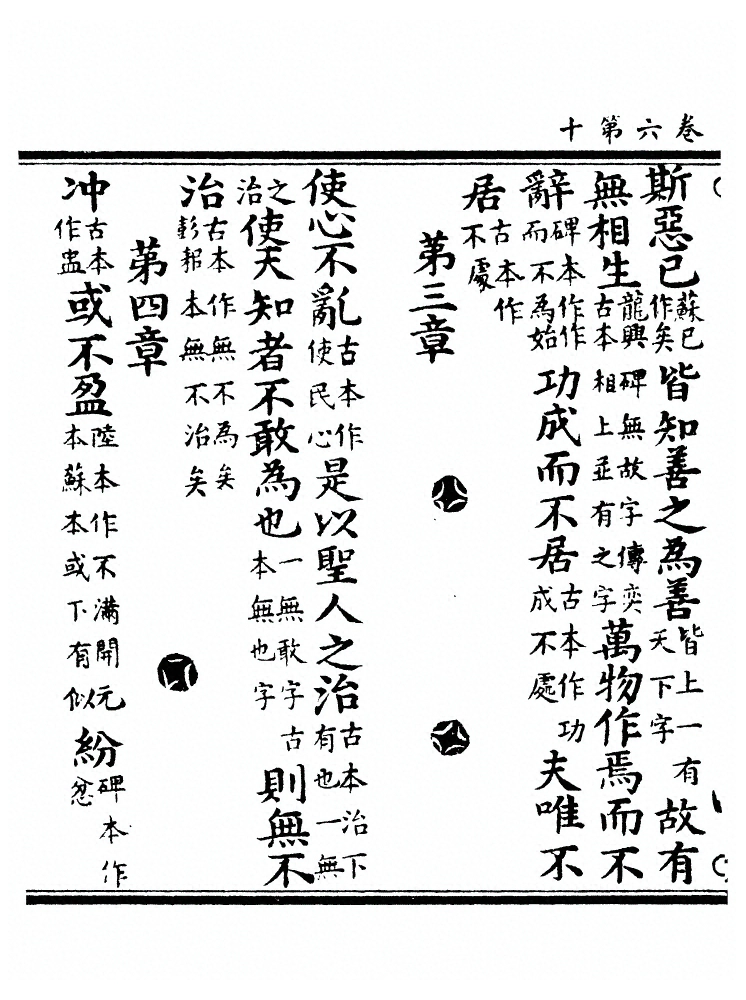 卷六第十
斯惡已蘇已作矣皆知善之為善皆上一有天下字故有
無相生龍興碑無故字傳奕古本相上並有之字萬物作焉而不
辭碑本作作而不為始功成而不居古本作功成不處夫唯不
居古本作不處
第三章
使心不亂古本作使民心是以聖人之治古本治下有也一無
之治使夫知者不敢為也一無敢字古本無也字則無不
治古本作無不為矣彭耜本無不治矣
第四章
冲古本作盅或不盈陸本作不滿開元本蘇本或下有似紛碑本作忿